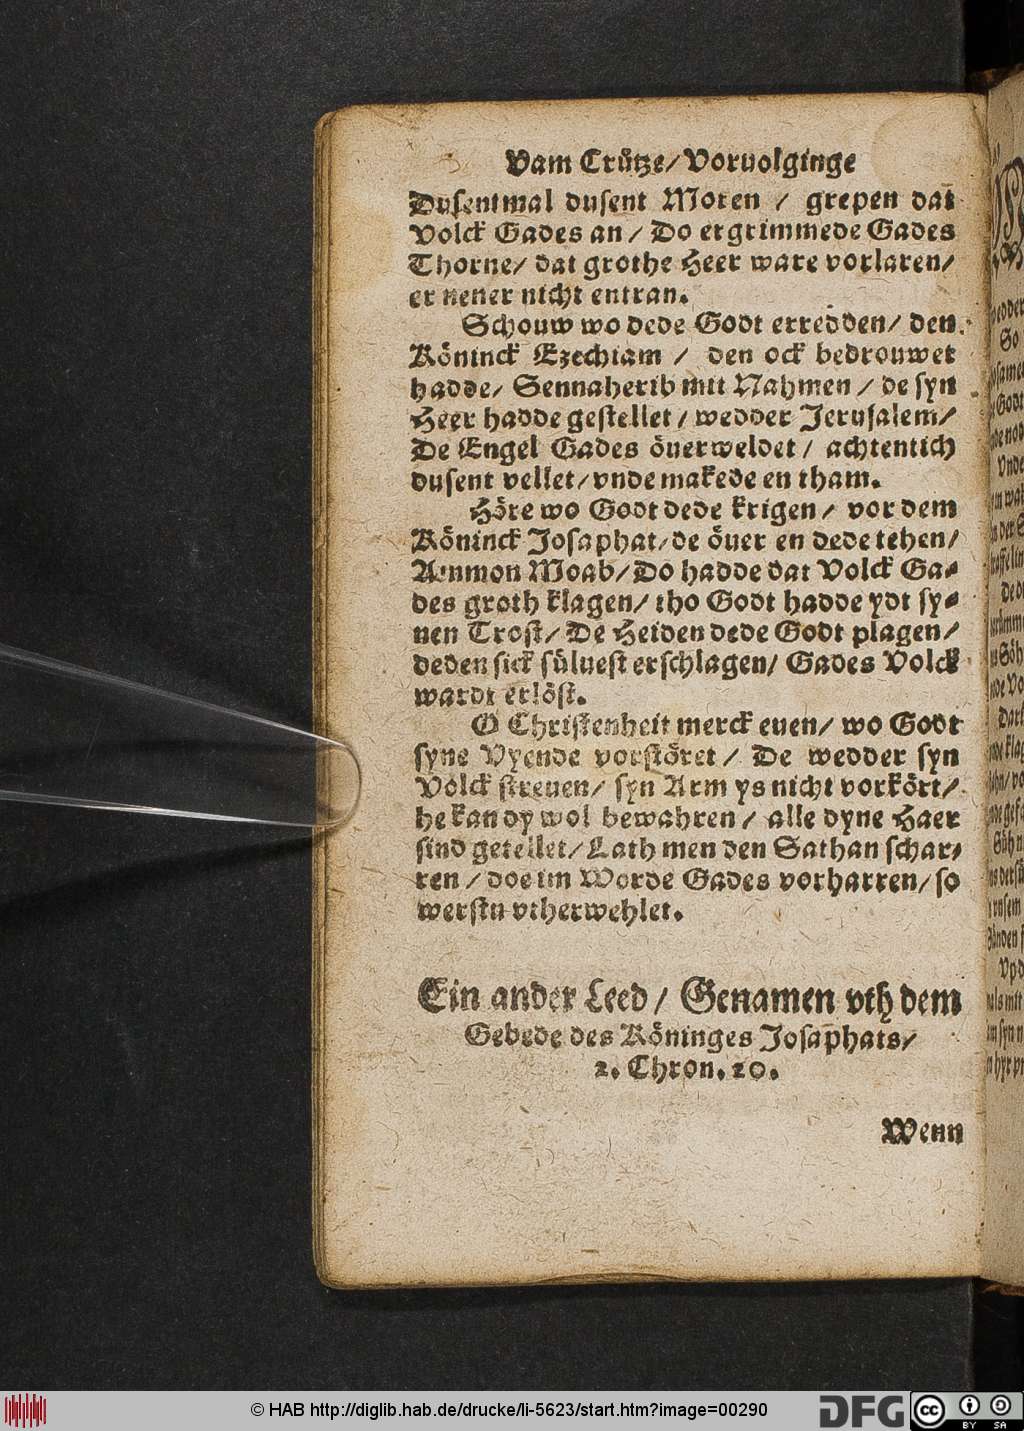 Vam Crütze/ Voruolginge
Dusentmal dusent Moren / grepen dat
Volck Gades an / Do ergrimmede Gades
Thorne/ dat grothe Heer ware vorlaren/
er nener nicht entran.
Schouw wo dede Godt erredden/ den
Köninck Ezechiam / den ock bedrouwet
hadde/ Sennaherib mit Nahmen / de syn
Heer hadde gestellet / wedder Jerusalem/
De Engel Gades öuerweldet / achtentich
dusent vellet/ vnde makede en tham.
Höre wo Godt dede krigen / vor dem
Köninck Josaphat/ de öuer en dede tehen/
Ammon Moab/ Do hadde dat Volck Ga-
des groth klagen/ tho Godt hadde ydt sy-
nen Trost/ De Heiden dede Godt plagen/
deden sick süluest erschlagen/ Gades Volck
wardt erlöst.
O Christenheit merck euen/ wo Godt
syne Vyende vorstöret / De wedder syn
Volck streuen/ syn Arm ys nicht vorkört/
he kan dy wol bewahren / alle dyne Haer
sind getellet/ Lath men den Sathan schar-
ren / doe im Worde Gades vorharren/ so
werstu vtherwehlet.
Ein ander Leed / Genamen vth dem
Gebede des Köninges Josaphats/
2. Chron. 20.
Wenn
© HAB http://diglib.hab.de/drucke/li-5623/start.htm?image=00290
DFG
cc BY SA